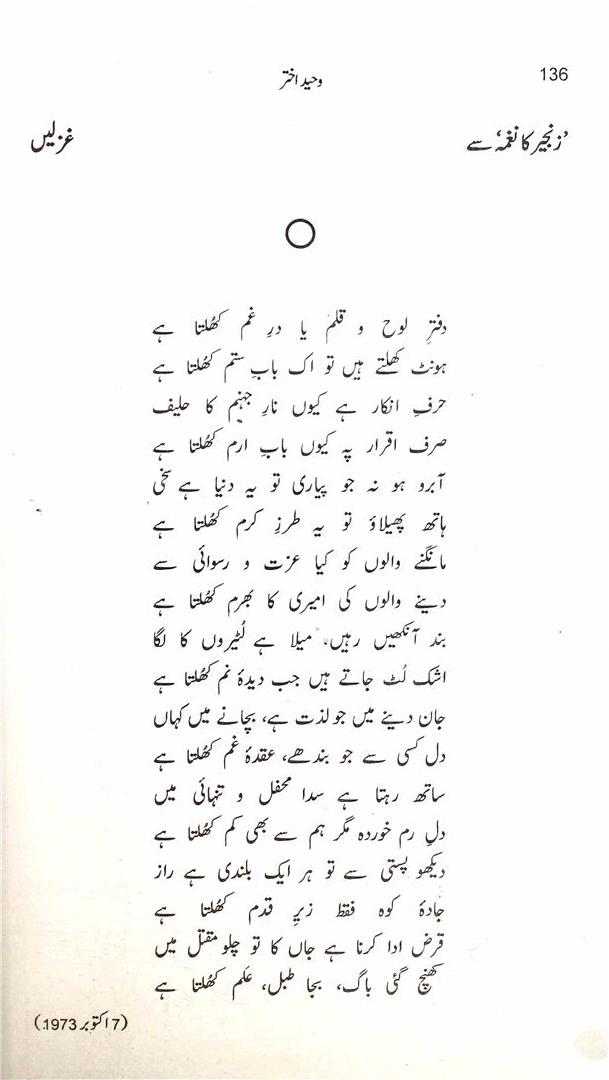 136
وحید اختر
’زنجیر کا نغمہ‘ سے
غزلیں
دفترِ لوح و قلم یا درِ غم کھُلتا ہے
ہونٹ کھلتے ہیں تو اک بابِ ستم کھُلتا ہے
حرفِ انکار ہے کیوں نارِ جہنم کا حلیف
صرف اقرار پہ کیوں بابِ ارم کھُلتا ہے
آبرو ہو نہ جو پیاری تو یہ دنیا ہے سخی
ہاتھ پھیلاؤ تو یہ طرزِ کرم کھُلتا ہے
مانگنے والوں کو کیا عزت و رسوائی سے
دینے والوں کی امیری کا بھرم کھُلتا ہے
بند آنکھیں رہیں، میلا ہے لُٹیروں کا لگا
اشک لُٹ جاتے ہیں جب دیدۂ نم کھُلتا ہے
جان دینے میں جو لذت ہے، بچانے میں کہاں
دل کسی سے جو بندھے، عقدۂ غم کھُلتا ہے
ساتھ رہتا ہے سدا محفل و تنہائی میں
دلِ رم خوردہ مگر ہم سے بھی کم کھُلتا ہے
دیکھو پستی سے تو ہر ایک بلندی ہے راز
جادۂ کوہ فقط زیرِ قدم کھُلتا ہے
قرض ادا کرنا ہے جاں کا تو چلو مقتل میں
کھنچ گئی باگ، بجا طبل، عَلم کھُلتا ہے
(7 اکتوبر 1973)